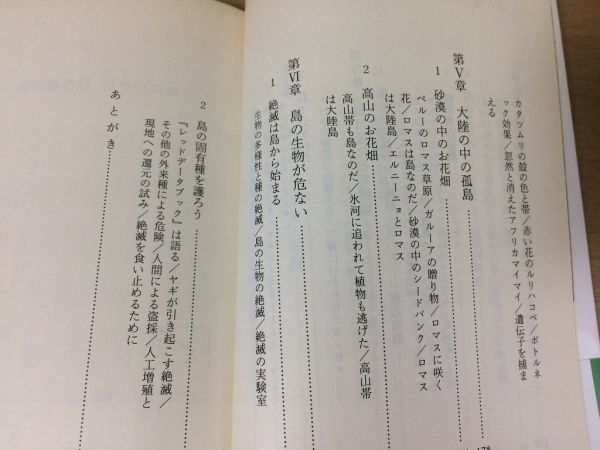 カタツムリの殻の色と帯／赤い花のルリハコベ／ボトルネ
ック効果／忽然と消えたアフリカマイマイ／遺伝子を捕ま
える
第Ⅴ章 大陸の中の孤島
1 砂漠の中のお花畑
ペルーのロマス草原／ガルーアの贈り物／ロマスに咲く
花／ロマスは島なのだ／砂漠の中のシードバンク／ロマス
は大陸島／エルニーニョとロマス
2 高山のお花畑
高山帯も島なのだ／氷河に追われて植物も逃げた／高山帯
は大陸島
第Ⅵ章 島の生物が危ない
1 絶滅は島から始まる
生物の多様性と種の絶滅／島の生物の絶滅／絶滅の実験室
2 島の固有種を護ろう
『レッドデータブック』は語る／ヤギが引き起こす絶滅／
その他の外来種による危険／人間による盗採／人工増殖と
現地への還元の試み／絶滅を食い止めるために
あとがき